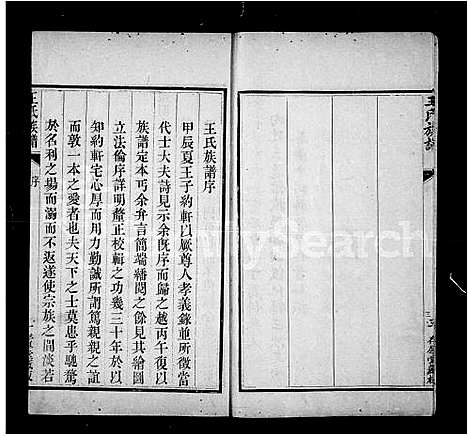 王氏族譜序
甲辰夏王子約軒以厥尊人孝義錄並所徵當
代士大夫詩見示余旣序而歸之越丙午復以
族譜定本丐余弁言簡端繙閱之餘見其繪圖
立法倫序詳明釐正校輯之功幾三十年於以
知約軒宅心厚而用力勤誠所謂篤親親之誼
而敦一本之愛者也夫天下之士莫患乎馳騖
於名利之場而溺而不返遂使宗族之間淡若
王氏族譜
序
一
王氏族譜
FamilySearch